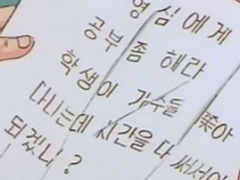 영심에게
공부 좀 해라
학생이 가수들 쫓아
다니는데 시간을 다 써서야
되겠니?